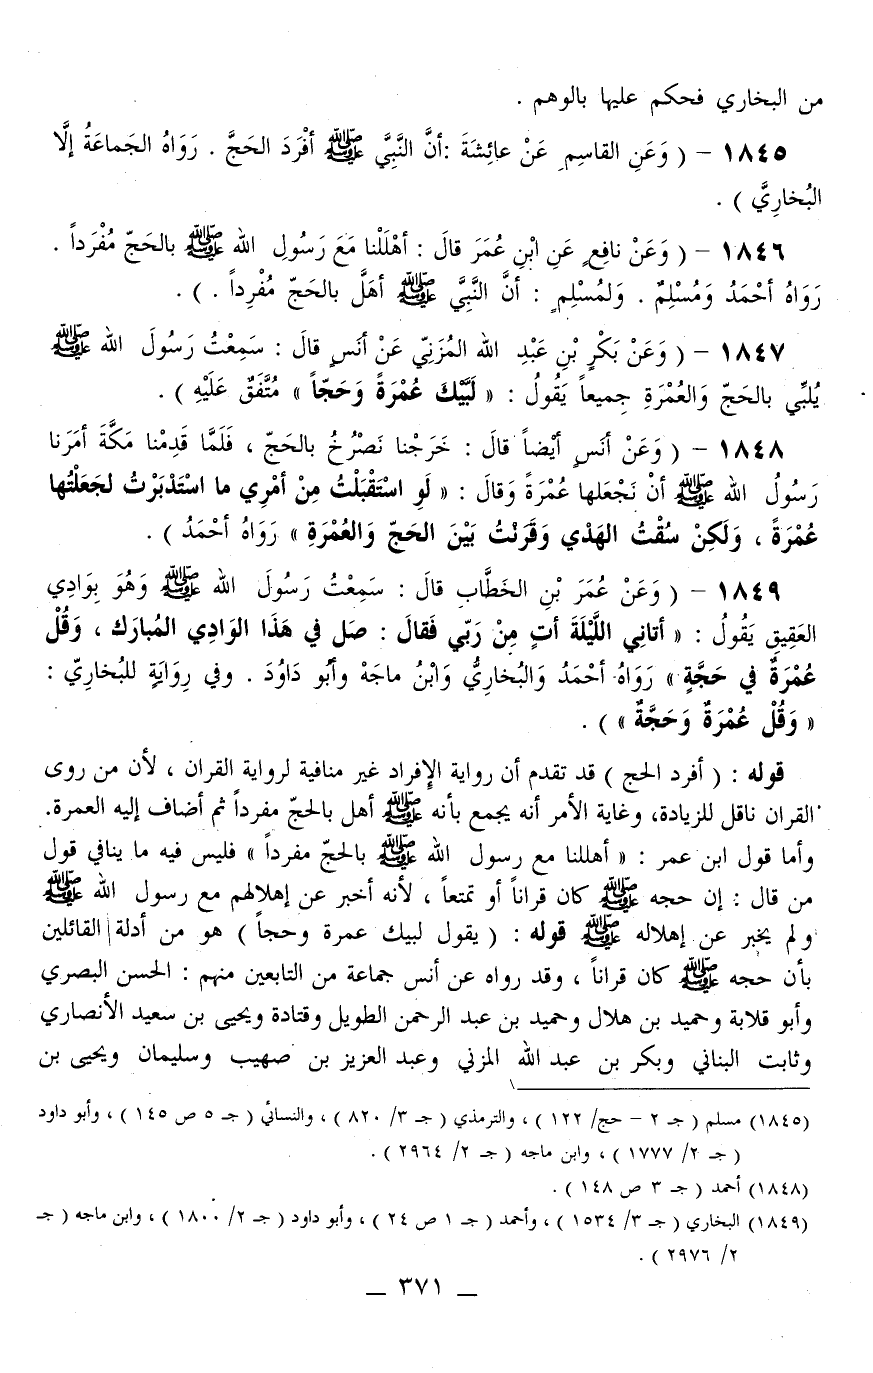 من البخاري فحكم عليها بالوهم .
١٨٤٥ – ( وَعَنِ القاسِمِ عَنْ عائِشَةَ :أنَّ النَّبِيَّ ﷺ أفْرَدَ الحَجَّ . رَوَاهُ الجَماعَةُ إلَّا
البُخارِيَّ ) .
١٨٤٦ – ( وَعَنْ نافِعٍ عَنِ ابْنِ عُمَرَ قالَ : أهْلَلْنا مَعَ رَسُولِ الله ﷺ بالحَجّ مُفْرَداً .
رَوَاهُ أحْمَدُ وَمُسْلِمٌ . وَلمُسْلِمٍ : أنَّ النَّبِيَّ ﷺ أهَلَّ بالحَجّ مُفْرِداً . ) .
١٨٤٧ – ( وَعَنْ بَكْرِ بْنِ عَبْدِ الله المُزَنِيّ عَنْ أنَسٍ قالَ : سَمِعْتُ رَسُولَ الله ﷺ
يُلبِّي بالحَجّ وَالعُمْرَةِ جمِيعاً يَقُولُ : « لَبَّيْكَ عُمْرَةً وَحَجّاً » مُتَّفَقٌ عَلَيْهِ ) .
١٨٤٨ – ( وَعَنْ أنَسٍ أيْضاً قالَ : خَرَجْنا نَصْرُخُ بالحَجّ ، فَلَمَّا قَدِمْنا مَكَّةَ أمَرَنا
رَسُولُ الله ﷺ أنْ نَجْعَلها عُمْرَةً وَقالَ : « لَوِ اسْتَقْبَلْتُ مِنْ أمْرِي ما اسْتَدْبَرْتُ لجَعَلْتُها
عُمْرَةً ، وَلَكِنْ سُقْتُ الهَدْي وَقَرَنْتُ بَيْنَ الحَجّ وَالعُمْرَةِ » رَوَاهُ أحْمَدُ ) .
١٨٤٩ – ( وَعَنْ عُمَرَ بْنِ الخَطَّابِ قالَ : سَمِعْتُ رَسُولَ الله ﷺ وَهُوَ بِوَادِي
العَقِيقِ يَقُولُ : « أتانِي اللَّيْلَةَ أتٍ مِنْ رَبِّي فَقالَ : صَل في هَذَا الوَادِي المُبارَك ، وَقُلْ
عُمْرَةٌ في حَجَّةٍ » رَوَاهُ أحْمَدُ وَالبُخارِيُّ وَابْنُ ماجَهْ وأبُو دَاوُدَ . وفي رِوَايَةٍ للبُخارِيّ :
« وَقُلْ عُمْرَةٌ وَحَجَّةٌ » ) .
قوله : ( أفرد الحج ) قد تقدم أن رواية الإفراد غير منافية لرواية القران ، لأن من روى
القران ناقل للزيادة، وغاية الأمر أنه يجمع بأنه ﷺ أهل بالحجّ مفرداً ثم أضاف إليه العمرة.
وأما قول ابن عمر : « أهللنا مع رسول الله ﷺ بالحجّ مفرداً » فليس فيه ما ينافي قول
من قال : إن حجه ﷺ كان قراناً أو تمتعاً ، لأنه أخبر عن إهلالهم مع رسول الله ﷺ
ولم يخبر عن إهلاله ﷺ قوله : ( يقول لبيك عمرة وحجاً ) هو من أدلة القائلين
بأن حجه ﷺ كان قراناً ، وقد رواه عن أنس جماعة من التابعين منهم : الحسن البصري
وأبو قلابة وحميد بن هلال وحميد بن عبد الرحمن الطويل وقتادة ويحيى بن سعيد الأنصاري
وثابت البناني وبكر بن عبد الله المزني وعبد العزيز بن صهيب وسليمان ويحيى بن
(١٨٤٥) مسلم ( جـ ٢ – حج/ ١٢٢ ) ، والترمذي ( جـ ٣/ ٨٢٠ ) ، والنسائي ( جـ ٥ ص ١٤٥ ) ، وأبو داود
( جـ ٢/ ١٧٧٧ ) ، وابن ماجه ( جـ ٢/ ٢٩٦٤ ) .
(١٨٤٨) أحمد ( جـ ٣ ص ١٤٨ ) .
(١٨٤٩) البخاري ( جـ ٣/ ١٥٣٤ ) ، وأحمد ( جـ ١ ص ٢٤ ) ، وأبو داود ( جـ ٢/ ١٨٠٠ ) ، وابن ماجه ( جـ
٢/ ٢٩٧٦ ) .
– ٣٧١ –